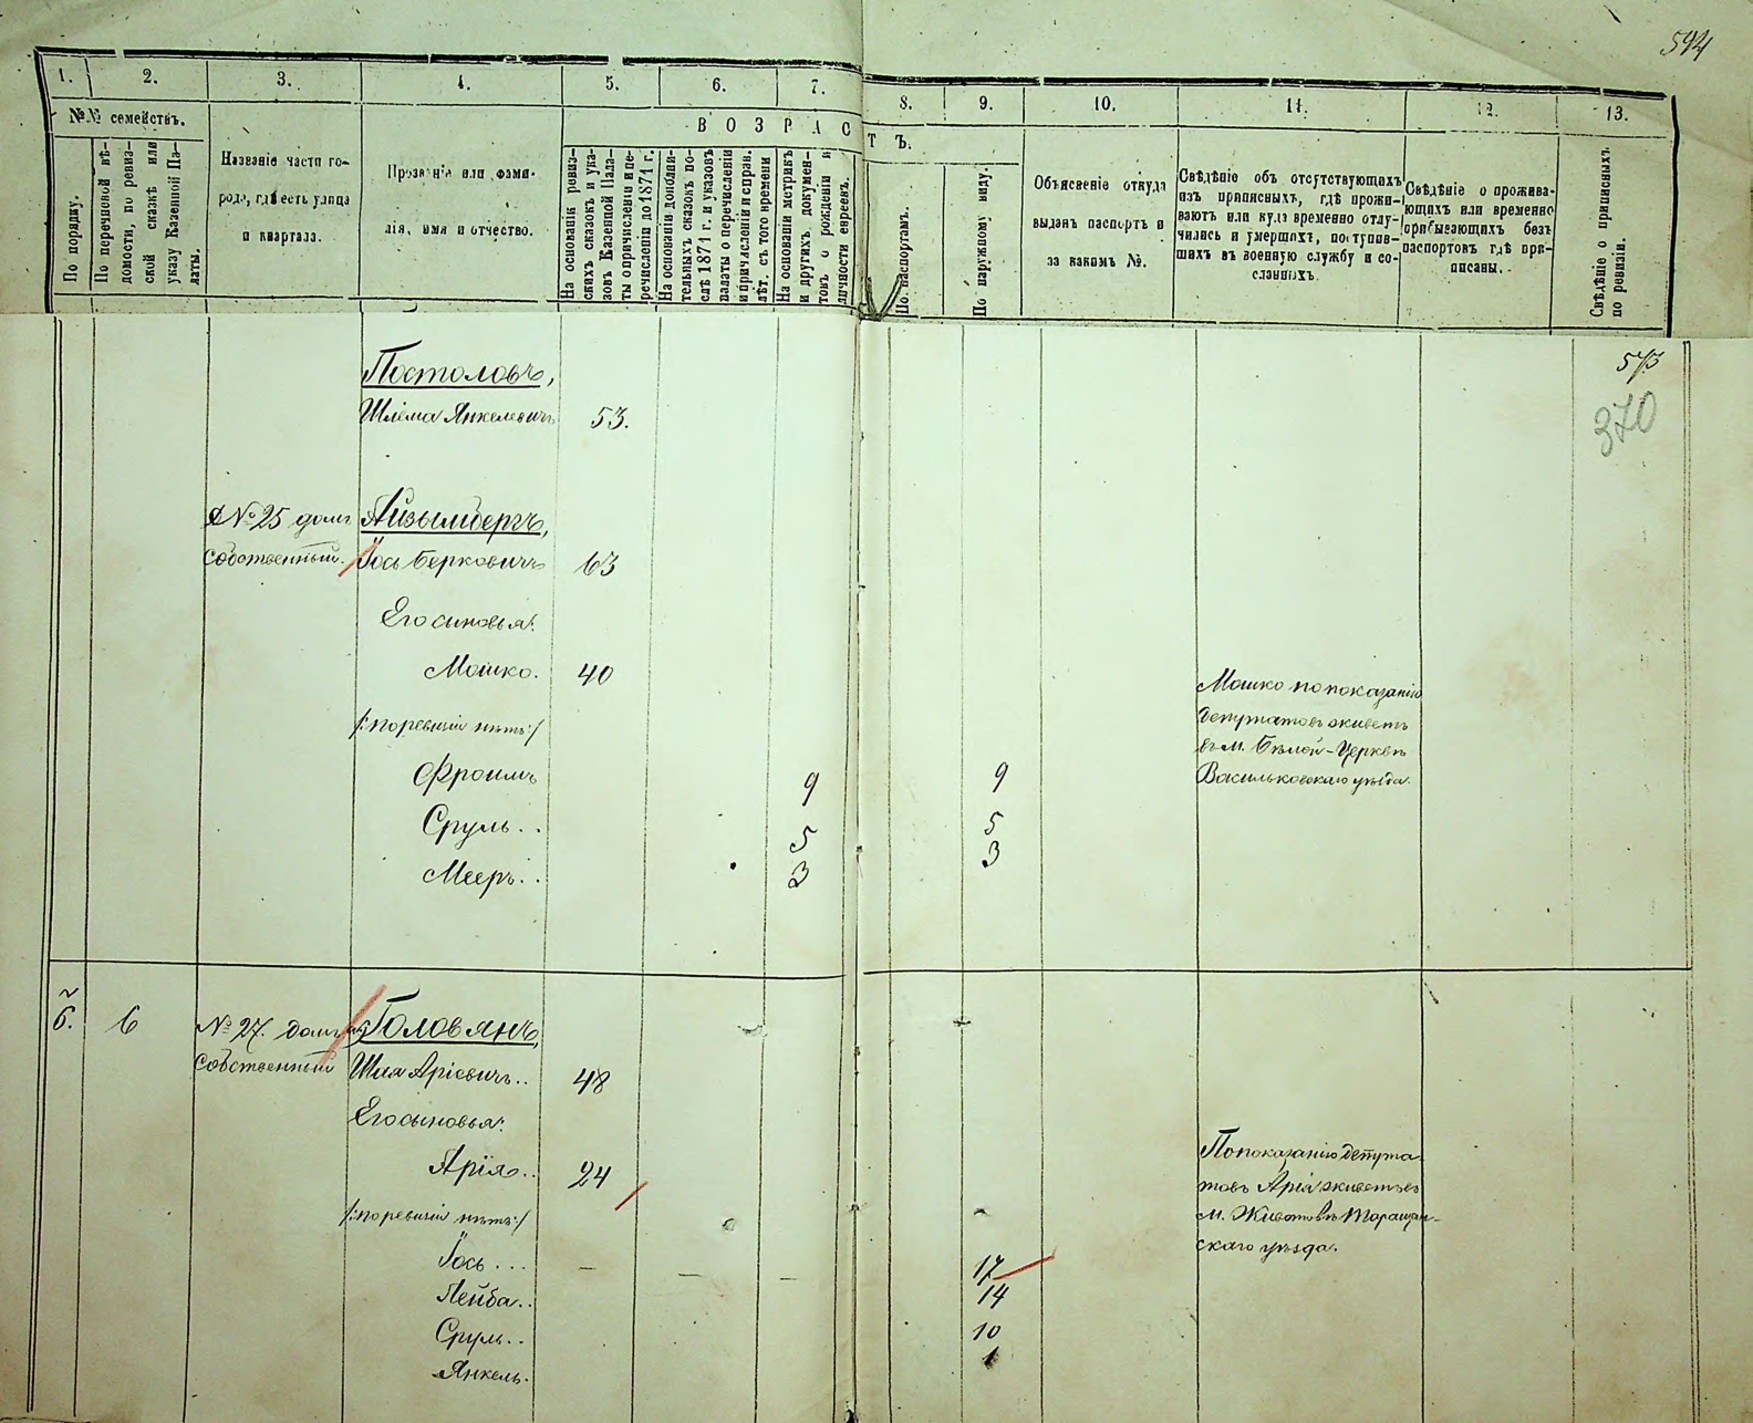 594
1. 2. 3. 4. 5. 6. 7. 8. 9. 10. 11. 12. 13.
№№ семействъ.
По порядку.
По перечневой вѣ-
домости, по ревиз-
ской сказкѣ или
указу Казенной Па-
латы.
Названіе части го-
рода, гдѣ есть улица
и квартала.
Прозваніе или фами-
лія, имя и отчество.
ВОЗРАСТЪ.
На основаніи ревиз-
скихъ сказокъ и ука-
зовъ Казенной Пала-
ты о причисленіи и пе-
речисленіи до 1871 г.
На основаніи дополни-
тельныхъ сказокъ по-
слѣ 1871 г. и указовъ
палаты о перечисленіи
и причисленіи и справ.
лѣт. съ того времени
На основаніи метрикъ
и другихъ докумен-
товъ о рожденіи и
личности евреевъ.
По паспортамъ.
По наружному виду.
Объясненіе откуда
выданъ паспортъ и
за какимъ №.
Свѣдѣніе объ отсутствующихъ
изъ приписныхъ, гдѣ прожи-
ваютъ или куда временно отлу-
чились и умершихъ, поступив-
шихъ въ военную службу и со-
сланныхъ.
Свѣдѣніе о прожива-
ющихъ или временно
прибывающихъ безъ
паспортовъ гдѣ при-
писаны.
Свѣдѣніе о приписныхъ
по ревизіи.
Постоловъ,
Шліома Янкелевичъ 53.
370
№ 25 домъ Айзымбергъ,
собственный. Іось Берковичъ 63
Его сыновья:
Мошко. 40
/:по ревизіи нѣтъ:/
Фроимъ 9 9
Сруль.. 5 5
Мееръ.. 3 3
Мошко по показанію
депутатовъ живетъ
въ м. Бѣлой-Церкви
Васильковскаго уѣзда.
6. 6 № 27. домъ Головянъ,
собственный Шия Аріевичъ.. 48
Его сыновья:
Арія.. 24
/:по ревизіи нѣтъ:/
Іось... – – – 17
Лейба.. 14
Сруль.. 10
Янкель. 1
По показанію депута-
товъ Арія живетъ въ
м. Животовѣ Таращан-
скаго уѣзда.